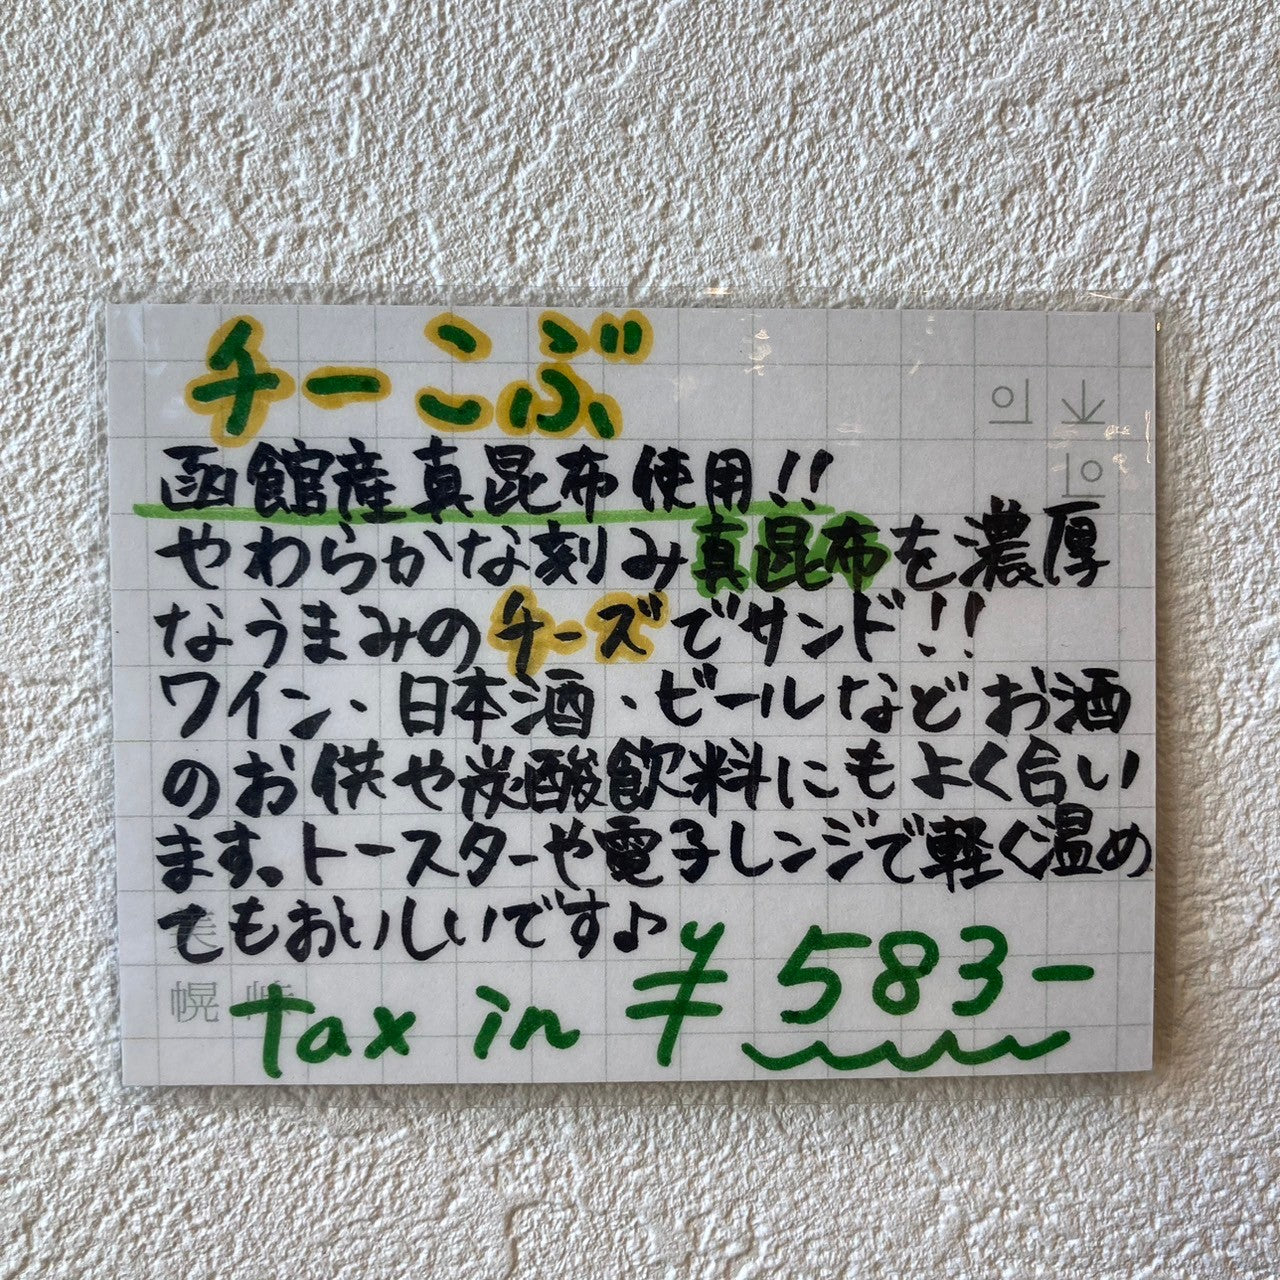 チーこぶ
函館産真昆布使用!!
やわらかな刻み真昆布を濃厚
なうまみのチーズでサンド!!
ワイン、日本酒、ビールなどお酒
のお供や炭酸飲料にもよく合い
ます。トースターや電子レンジで軽く温め
てもおいしいです♪
tax in ¥583-